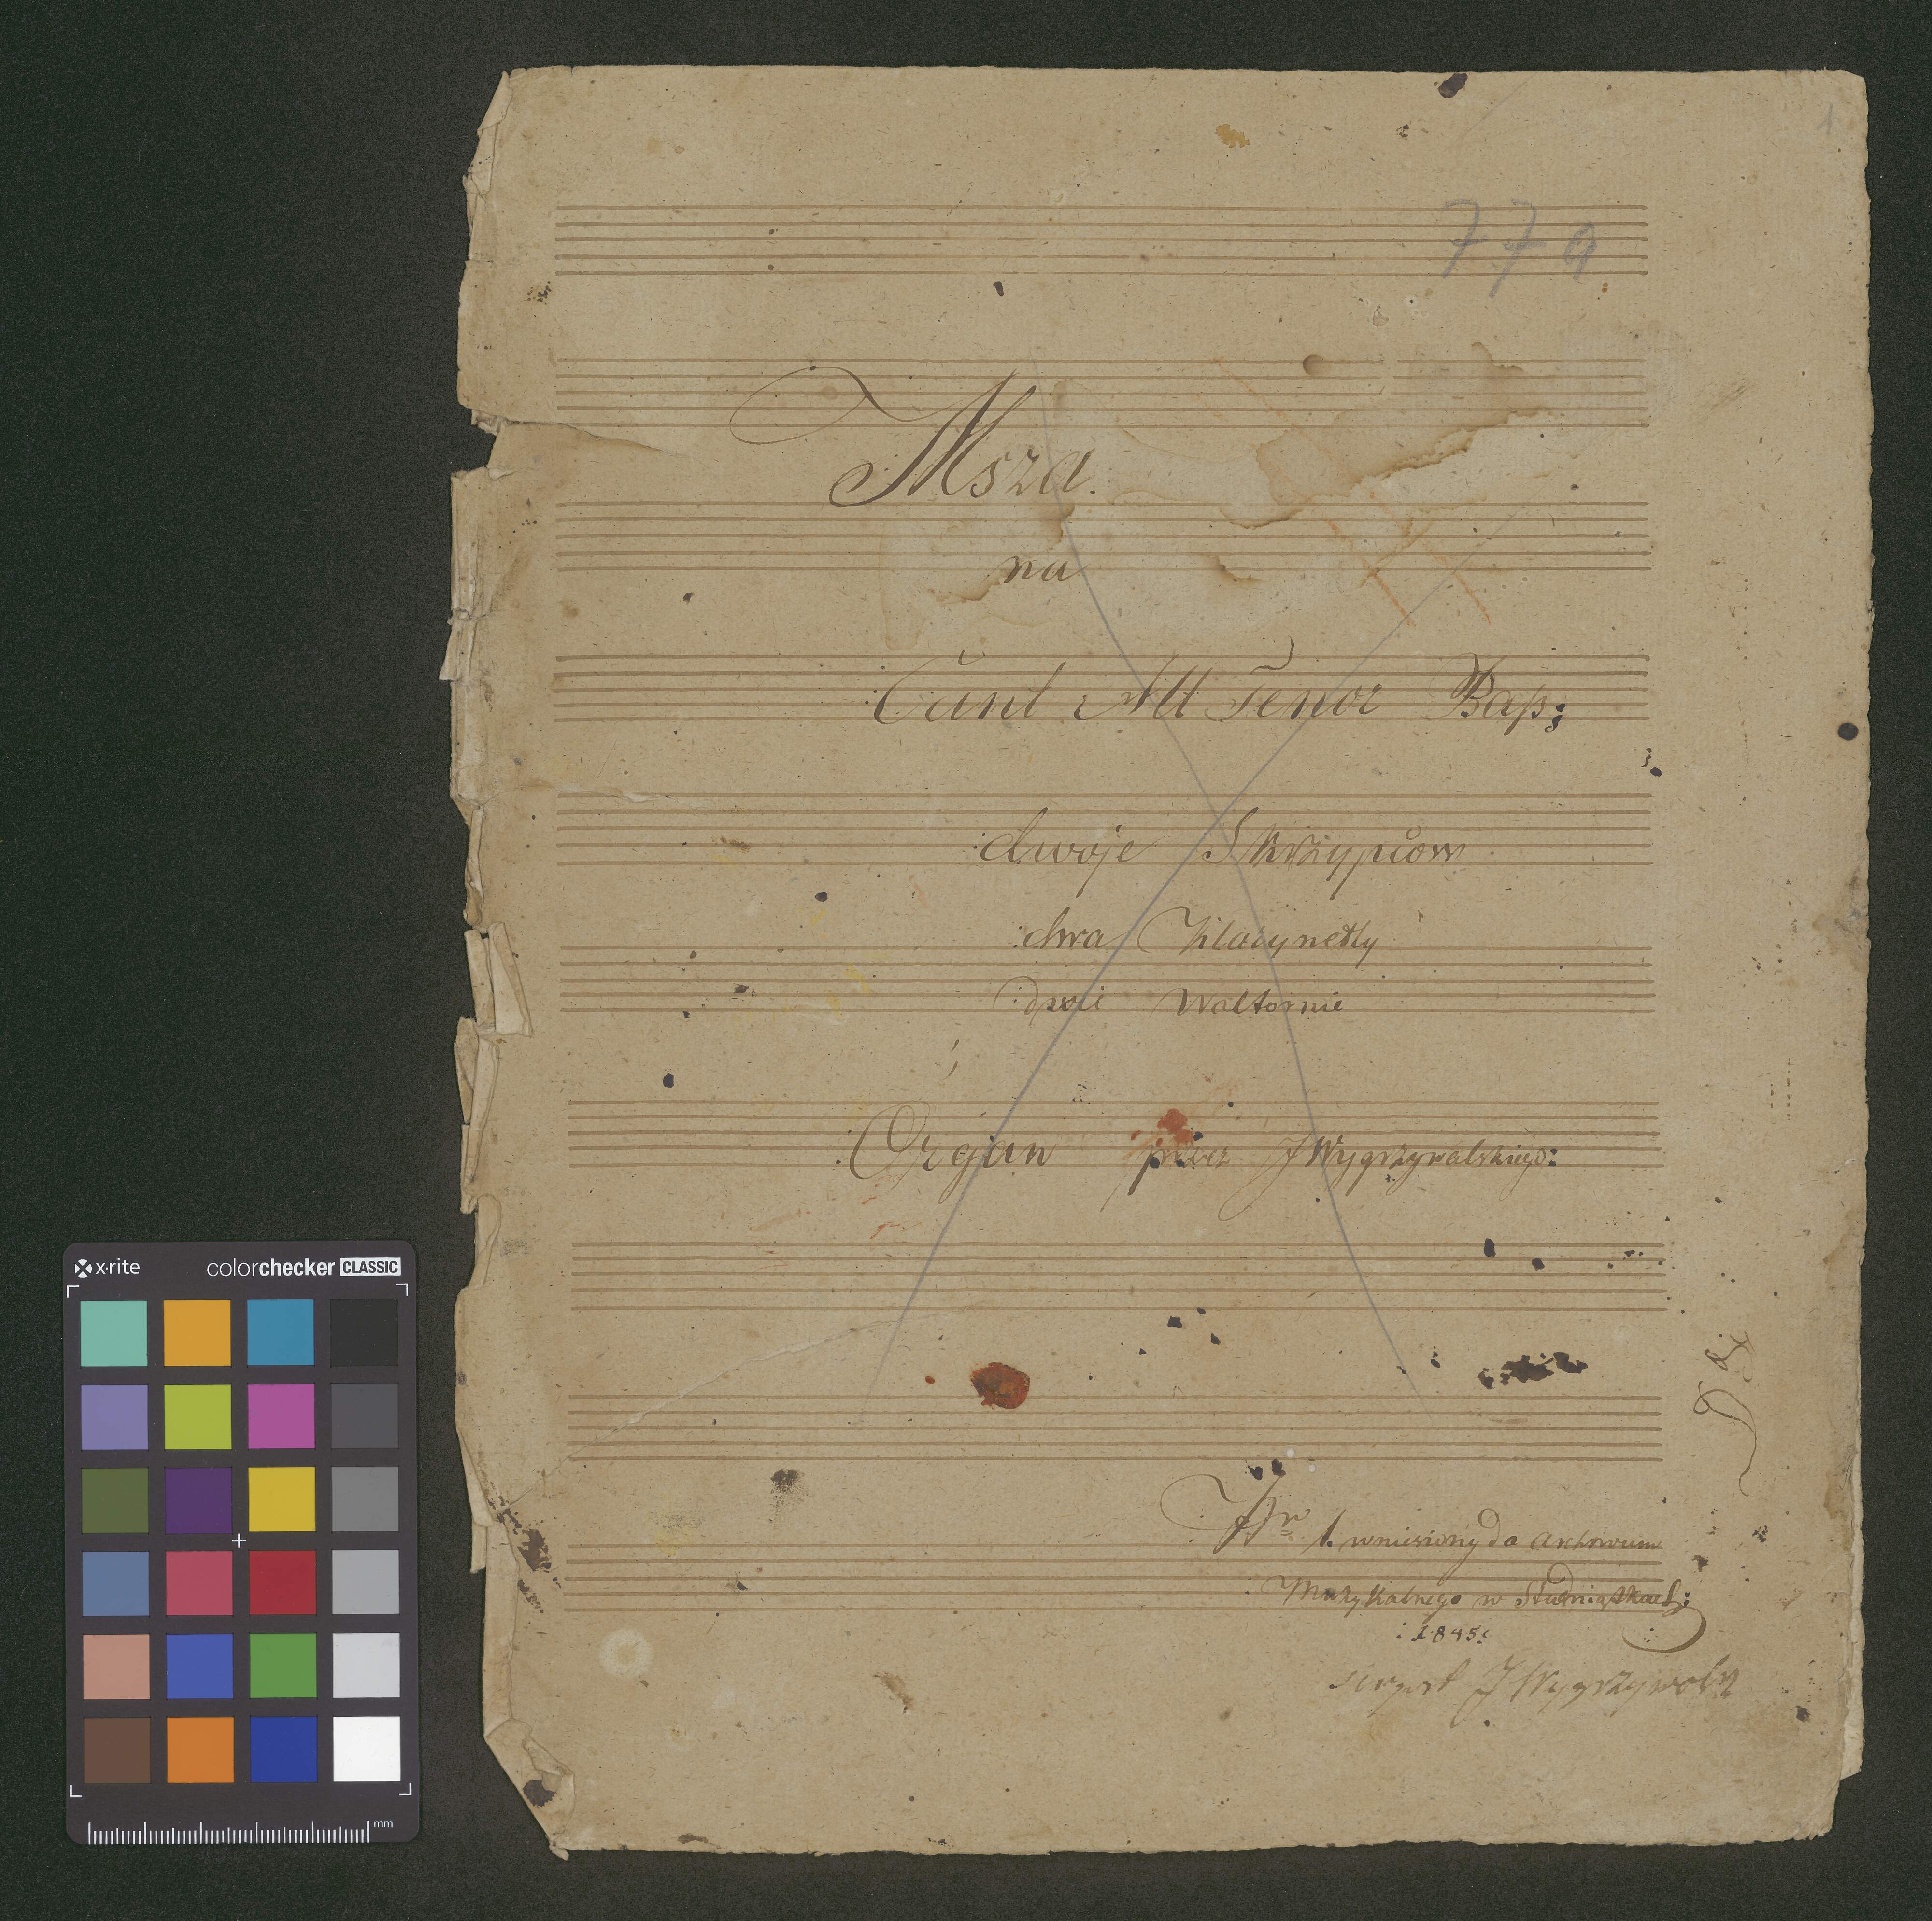 1
77a
Msza.
na
Cant Alt Tenor Baß;
dwoje Skrzypców
dwa Klarynetty
dwie Waltornie
i
Organ przez J Wygrzywalskiego:
Daj
Nr 1. wniesiony do Archiwum
Muzykalnego w Studniąskach:
:1845:
J Wygrzywolz
x·rite colorchecker CLASSIC
mm